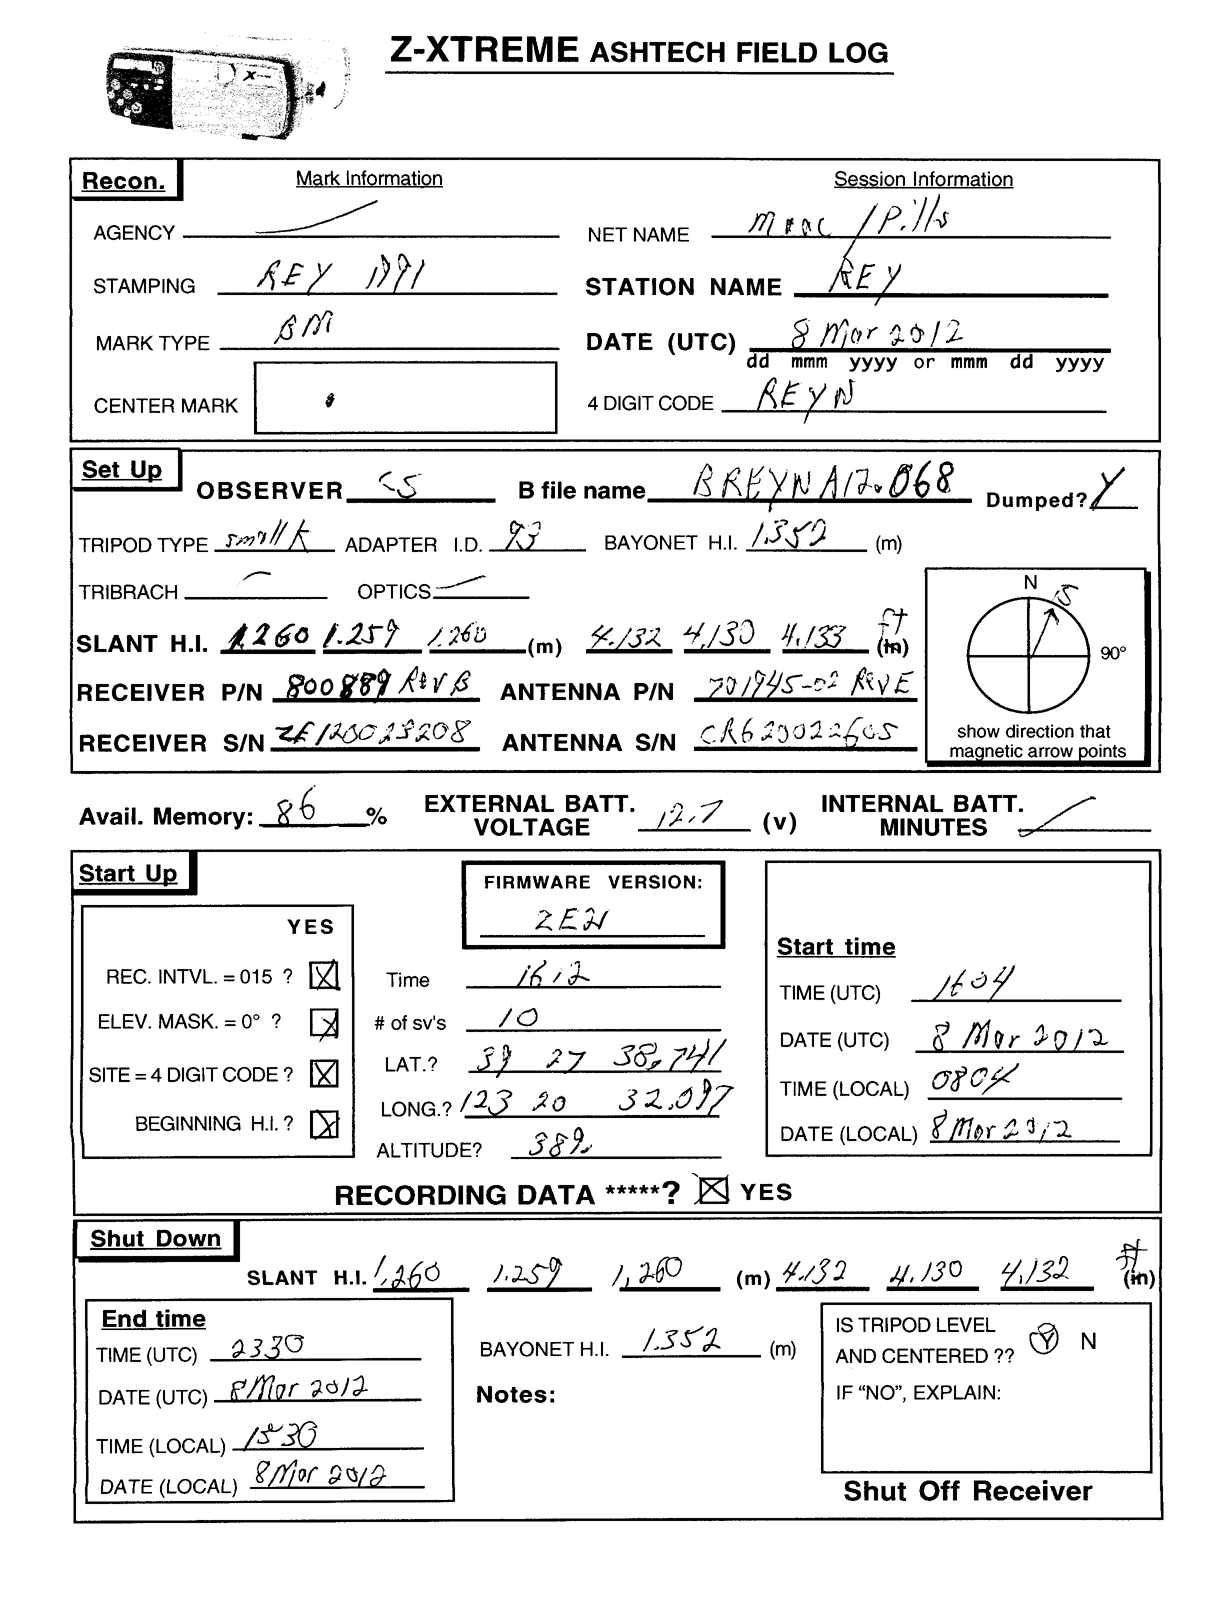 Z-XTREME ASHTECH FIELD LOG
Recon. Mark Information Session Information
AGENCY NET NAME / Pills
STAMPING REY 1991 STATION NAME REY
MARK TYPE BM DATE (UTC) 8 Mar 2012
dd mmm yyyy or mmm dd yyyy
CENTER MARK 4 DIGIT CODE REYN
Set Up OBSERVER CS B file name BREYNA12.068 Dumped? Y
TRIPOD TYPE small k ADAPTER I.D. 93 BAYONET H.I. 1.352 (m)
TRIBRACH OPTICS
N 15
90°
SLANT H.I. 1.260 1.259 1.260 (m) 4.132 4.130 4.133 ft (in)
RECEIVER P/N 800889 Rev B ANTENNA P/N 701945-02 Rev E
RECEIVER S/N ZE120023208 ANTENNA S/N CR620022605
show direction that
magnetic arrow points
Avail. Memory: 86 % EXTERNAL BATT. VOLTAGE 12.7 (v) INTERNAL BATT. MINUTES
Start Up
FIRMWARE VERSION:
ZE21
YES
REC. INTVL. = 015 ? X
ELEV. MASK. = 0° ? X
SITE = 4 DIGIT CODE ? X
BEGINNING H.I. ? X
Time 1612
# of sv's 10
LAT.? 39 27 38.741
LONG.? 123 20 32.097
ALTITUDE? 389
Start time
TIME (UTC) 1604
DATE (UTC) 8 Mar 2012
TIME (LOCAL) 0804
DATE (LOCAL) 8 Mar 2012
RECORDING DATA *****? X YES
Shut Down
SLANT H.I. 1.260 1.259 1.260 (m) 4.132 4.130 4.132 ft (in)
End time
TIME (UTC) 2330
DATE (UTC) 8 Mar 2012
TIME (LOCAL) 1530
DATE (LOCAL) 8 Mar 2012
BAYONET H.I. 1.352 (m)
Notes:
IS TRIPOD LEVEL
AND CENTERED ?? Y N
IF “NO”, EXPLAIN:
Shut Off Receiver